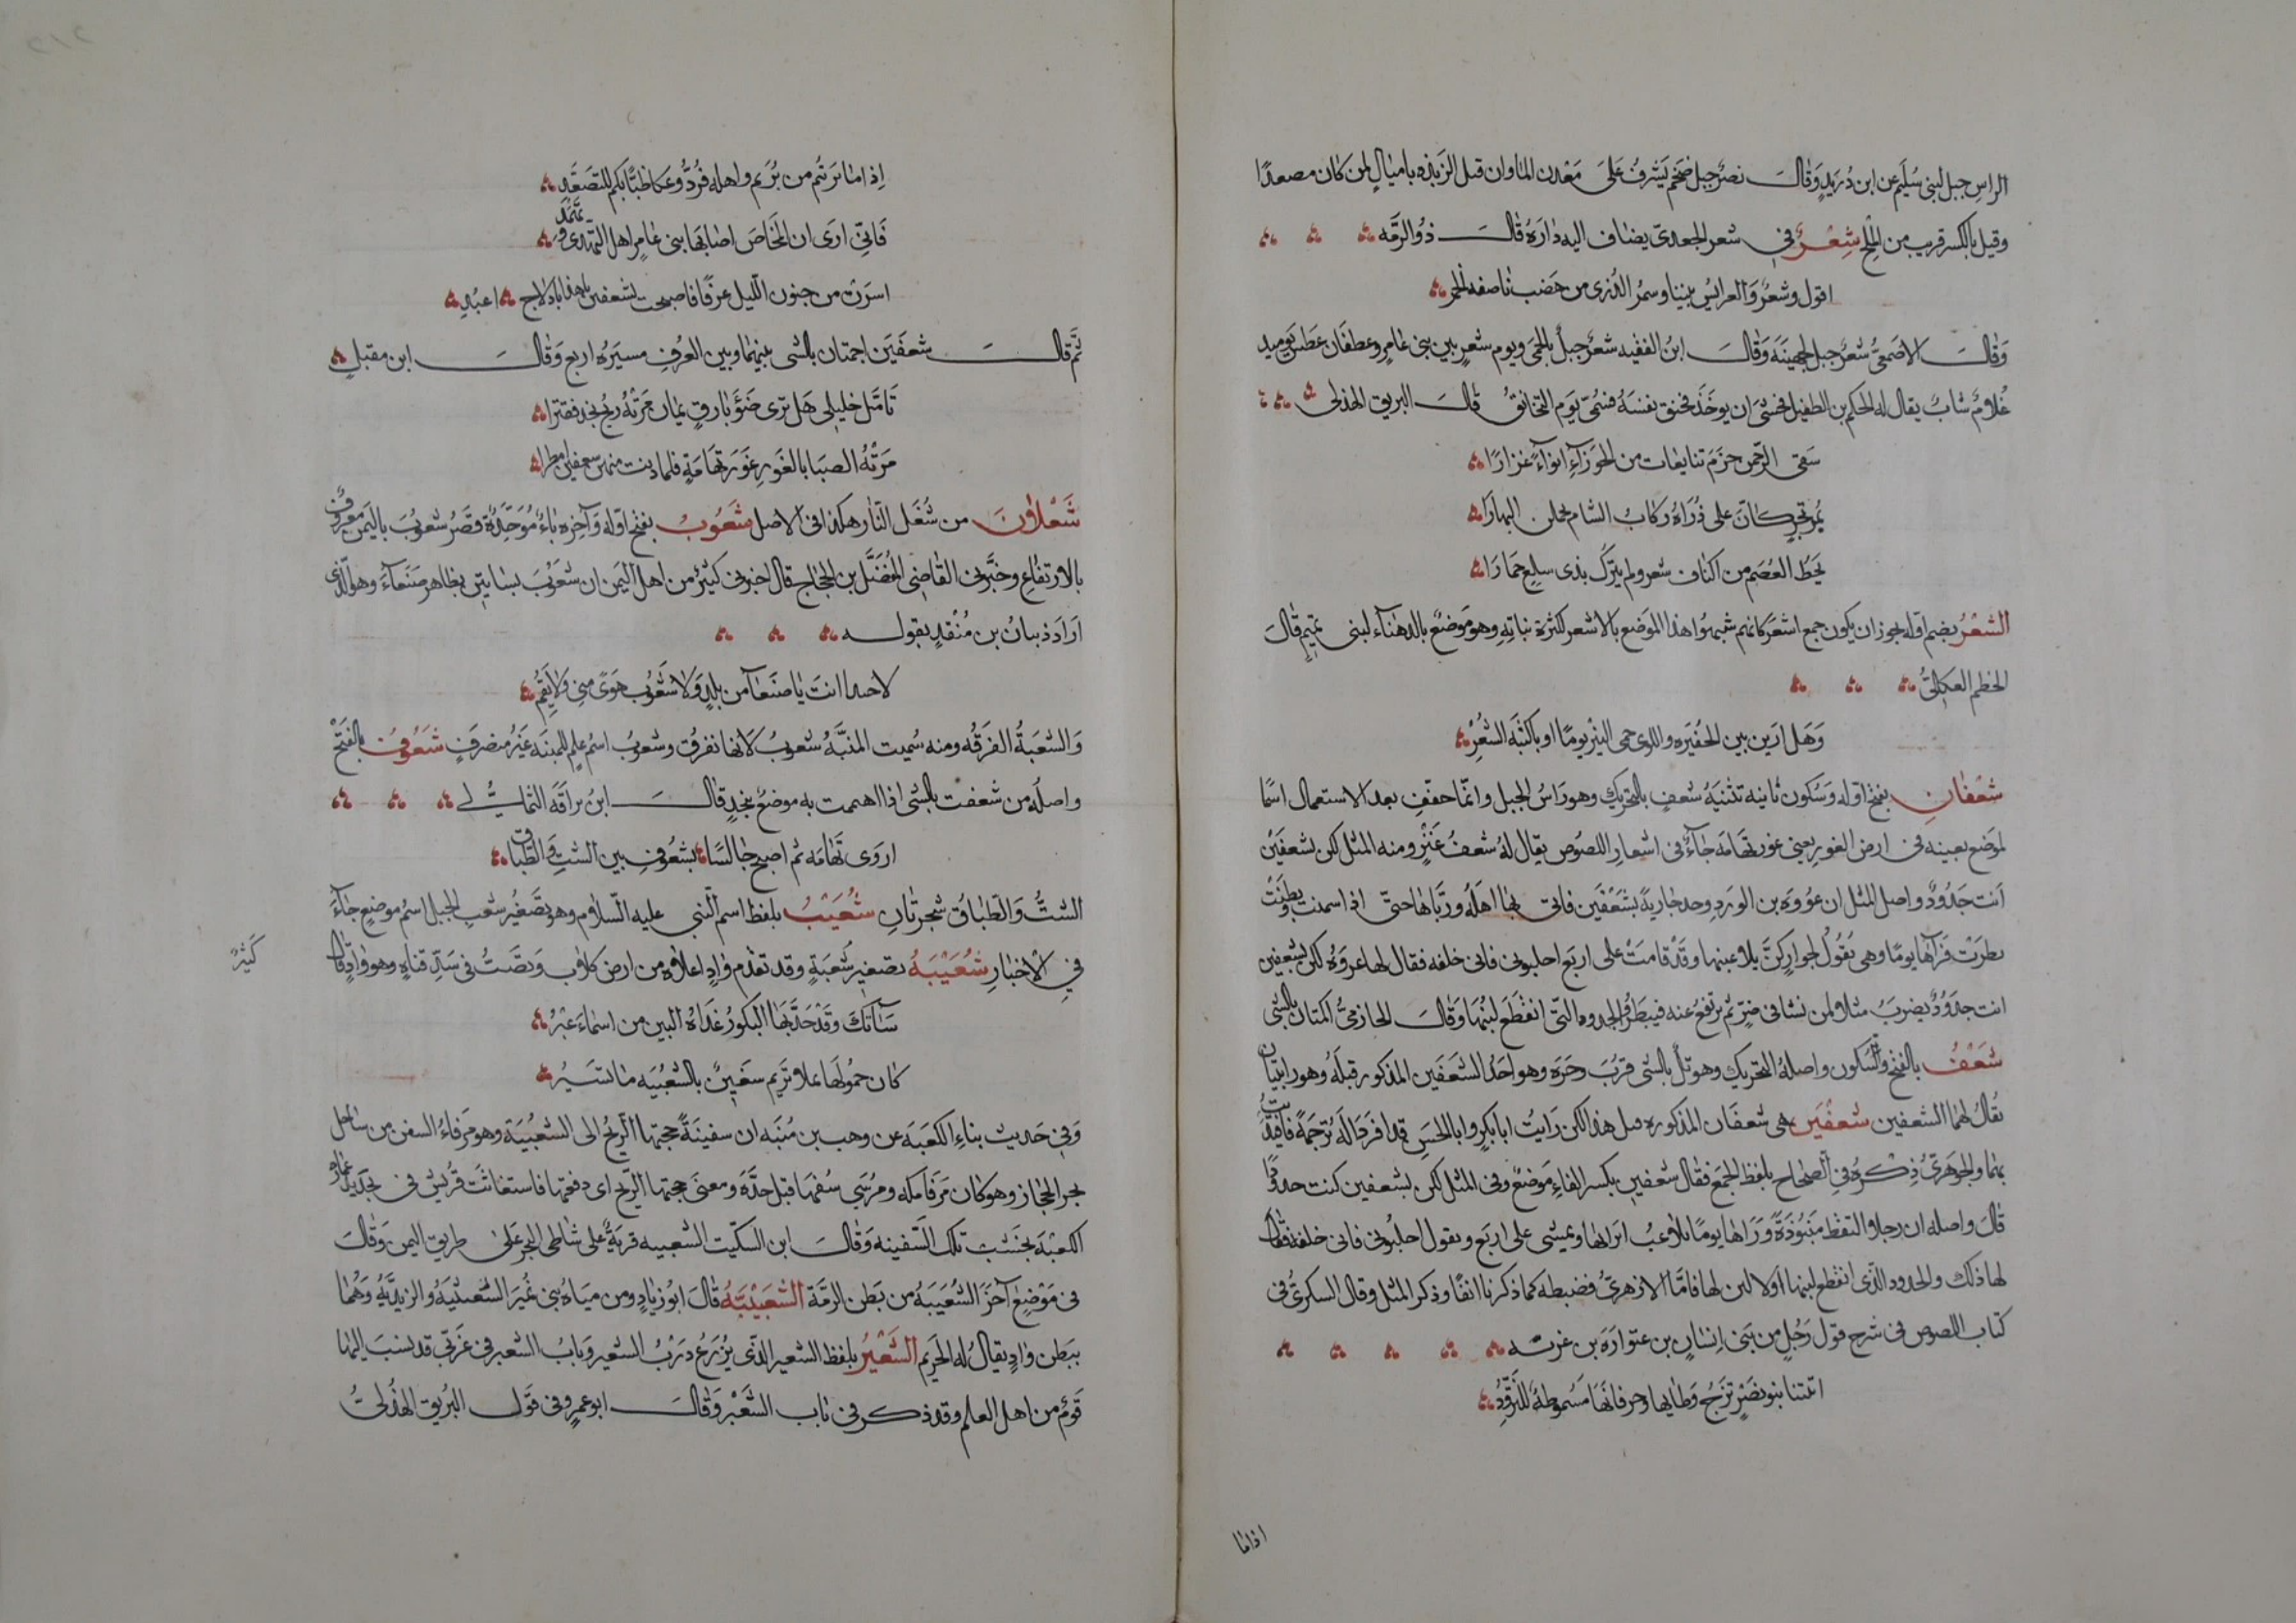 الراس جبل لبنى سُلَيم عن ابن دُرَيدٍ وَقالَ نصرٌ جبل ضخم يَشرفُ عَلىَ مَعْدن الماوان قبل الرَبذه باميالٍ لمن كان مصعدًا
وقيل بالكسر قريب من الملح شِعْرٌ في شعر الجعدىّ يضاف اليه دارَة قالَ ذوُ الرمَّه
اقول وشعرٌ وَالعرايس بيننا وسمرُ الذرى من هَضب ناصفه الحمر
وَقالَ الاصمعيُّ شعرٌ جبل لجهينَة وَقالَ ابنُ الفقيه شعرٌ جبلٌ بالحمى ويوم شعرٍ بين بنى عامرٍ وغطفَان عطش يَوميد
غُلامٌ شابٌ يقال له الحكم بن الطفيل فخشى ان يوخَذ فخنق نفسَهُ فسُمّى يَوم التخانق قالَ البريق الهذلى
سَقى الرّحمن حزمَ تنايعات من الجَوزآءِ انوآءً غزارًا
بمُرتجزٍ كانَّ على ذُرَاهُ ركابُ الشام يحملن البهارَا
يَحطُّ العُصمَ من اكناف شعر ولم يترك بذى سلع حمَارَا
الشعْرُ بضم اوّله يجوز ان يكون جمع اشعَر كانهم شبهوُا هذا الموَضع بالاشعر لكثرة نباتِهِ وهو مَوضعٌ بالدهنآء لبنى تميمٍ قالَ
الخطم العكلىُّ
وَهَل اَرَين بين الحُفَيره واللوى حمى النيْر يومًا او باكثبة الشعْرِ
شعْفانِ بفتح اوّله وَسُكون ثانيه تثنيَهُ شعفٍ بالتحريك وهو رَاسُ الجبل وانمّا خففِ بعد الاستعمال اسْمًا
لموَضع بعينه فى ارض الغورِ يعنى غور تهَامَه جَآء فى اشعار اللصُوص يقال لهُ شعفُ عَنْزٍ ومنه المثل لكن لشعفَيْن
اَنت جَدُوُدٌ واصل المثل ان عرُوَه بن الورَدِ وجد جَاريةً بشعْفَين فاتى بهَا اهلَهُ وربَّاهَا حتىّ اذا اسمنت وبطنَتْ
بطرَتْ فرآهَا يومًا وهى تقُولُ لجوارٍ كنّ يلاعبنها وقَدْ قامَتْ على اربَع احلبونى فانى خلفه فقال لهَا عروَهُ لكن بشعفين
انت جَدوُدٌ يضربَ مثلاً لمن نشا فى ضرٍّ ثم ترتفعُ عنه فيبَطرُ والجدود التى انقَطَع لبَنُهَا وَقالَ الحازمىُّ اكمتان بالسّى
شَعْفُ بالفتح وَالسّكون واصلهُ التحريك وهو تلٌ بالسى قربُ وجرَه وهو احَدُ الشعَفَين المذكور قبلَهُ وهو رابيتَان
يُقالُ لهمَا الشعفين شعْفَين هى شعفَان المذكوره قبل هذا لكن رَايتُ ابابكرٍ وابا الحسَنِ قد افردَا لَهُ ترجمَةً فاقتدَيتُ
بهمَا والجوَهَرىُّ ذِكْرهُ فىِ الصحَاحِ بلفظ الجَمع فقال شعفين بكسر الفاءِ مَوضعٌ وفى المثل لكن بشعفين كنت جدودًا
قالَ واصله ان رجلا التقط منبُوذَةً وَرَاهَا يومًا تلاعبُ اترابها وتمشى على اربَع وتقول احلبُونى فانى خلفه فقالَ
لهَا ذلك والجدود الذّى انقطع لبنها اولا لبن لها فامَّا الازهرىُّ فضبطه كما ذكرنا انفًا وذكر المثل وقال السكرىُّ فى
كتاب اللصوص فى شرح قول رَجُلٍ من بَنى اِنسَانٍ بن عتوارَة بن غزيّه
اتتنا بنو نَصْرٍ تزجُ وَطابها وخرفانَها مَسْموُطةً للتزوِّدِ
اذاما
إذ اماتَرتَمُ من بُرَيم واهله فرُدُّوُ عكاظبًّا بكم للتصَعَّدِ
فَانىّ ارَى ان المخَاضَ اصَابهَا بنى عَامرٍ اهل التهدى وتهمُّدِ
اسرَتْ من جنون اللّيل عزفًا فاصبحت بشعفين ياهذا بادلاج اعبُدِ
ثمَّ قالَ شعفَيَن اجمتان بالسّى بينهمَا وبين العُرفِ مسيَرَه اربع وَقالَ ابن مقبلٍ
تَامّل خليلى هَل تَرى ضَوَءَ بَارقٍ يمَان مَرَتهُ ريحُ نجدٍ ففترا
مَرَتْهُ الصبَا بالغَورِ غَوَر تهَامَةٍ فلما دنت منهمن بشعفين امطرا
شَعْلاَنَ من شُعَل النّار هكذا فى الاصل شَعُوبُ بفتح اوّله وَآخِره بَاءٌ مُوَحّدَةٌ قصَرُ شعوُبَ باليَمن معروُفٌ
بالارتفاع وخبَّرنى القاضِى المُفَضَّل بن الحجَّاج قال اخبرنى كثيرٌ من اهل اليَمن ان شعَوُبَ بسَاتين بظَاهر صَنعَآءَ وهو الّذى
ارَادَ ذبيانُ بن مُنقَذٍ بقوله
لا حبذا انتَ يا صنعآ من بلدٍ وَلا شعُوُب هَوَىً منى وَلا نقِمُ
وَالشعَبَةُ الفَرَقه ومنه سُميت المنيَّهُ شعَوُبُ لانها تفرُق وشعوبُ اسمُ علمٍ للمنيَه غَيَرُ منصرفٍ شَعُوُفٌ بالفَتْح
واصلهُ من شعفت بالشى اذا اهممت به موضعٌ بنجدٍ قالَ ابنُ براقَه الثماليُّ
اروَى تهَامَه ثم اصبح جالسًا بشعُوفَ بين الشثِ وَالطّبّاق
الشثُّ وَالطّبَاقُ شجرتَان شُعَيْبُ بلفظ اسم النّبى عليه السّلاَم وهو تصَغيُر شعبِ الجبل اسمُ موضعٍ جَآءَ
فىِ الاخبَارِ شُعَيْبَهُ تصَغير شعْبَةٍ وقد تقدّم وَادٍ اعلاَه من ارض كلاب وَيصَبُّ فى سَدِّ قناةٍ وهو وَادٍ قالَ
كَثيرٌ
سَآتَكَ وَقَدْ حَدَّبهَا البكورُ غَدَاهَ البين من اسمَآءَ عيْرُ
كان حمُولهَا بملا تَرِيم سَفينٌ بالشعَيْبَه مَا تسَيرُ
وَفى حَديث بنَاءِ الكَعَبَه عن وهب بن مُنَبّه ان سفينَةً حجتهَا الرّيح الى الشعَيْبَة وهو مَرفاءُ السفن من سَاحل
بحر الحجَاز وهو كان مَرفا مكه ومُرسَى سُفنهَا قبل جدَّه وَمعنى حجتها الرّيح اى دفعتهَا فاستعانَت قرُيش فى تجدَيد عمَارَة
الكعَبَة بخشَب تلك السَّفينه وَقالَ ابن السكّيت الشعيبه قريَةٌ على شَاطى البحر عَلىَ طريق اليمن وَقالَ
فى مَوْضعٍ آخَرَ الشُّعَيَبهُ من بَطن الرمَّة الشَعَيْبَيَّهُ قالَ ابوُ زيَادٍ ومن ميَاه بنى نمُيَر الشعَيْبيَّهُ والزيديَّهُ وَهُمَا
ببَطن وَادٍ يقالُ لهُ الحَريم الشَّعِيْرُ بلفظ الشعير الذّى يُزَرعُ دَرْبُ الشعيرِ وَبابُ الشعير فى غَربّى قد ينسَبَ اليهَا
قوَمٌ من اهل العلم وقد ذكر فى بَاب الشعَيْر وَقالَ ابوُ عمرٍو فى قوَل البُريقِ الهُذَلىُّ